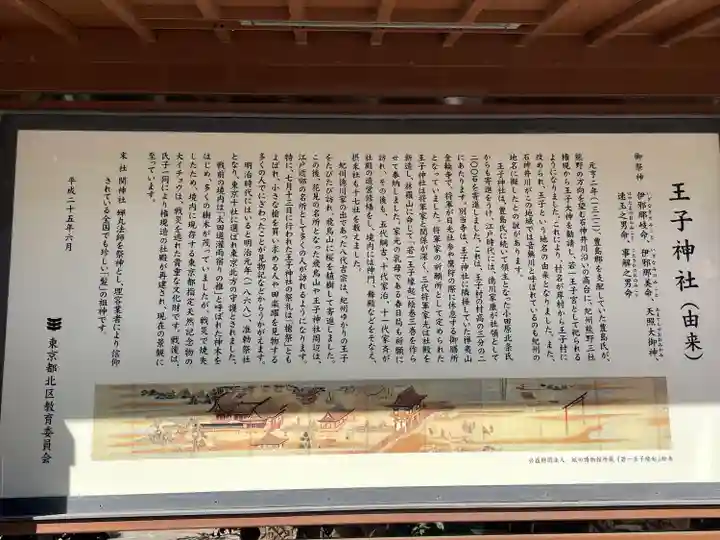 王子神社（由来）
御祭神
伊邪那岐命、伊邪那美命、天照大御神、
速玉之男命、事解之男命
元亨二年（一三二二）、豊島郡を支配していた豊島氏が、
熊野の方向を望む石神井川沿いの高台に、紀州熊野三社
権現から王子大神を勧請し、若一王子宮として祀られる
ようになりました。これにより、村名が岸村から王子村に
改められ、王子という地名の由来となりました。また、
石神井川がこの地域では音無川と呼ばれているのも紀州の
地名に擬したとの説があります。
王子神社は、豊島氏に続いて領主となった小田原北条氏
からも寄進をうけ、江戸時代には、徳川家康が社領として
二〇〇石を寄進しました。これは、王子村の村高の三分の二
にあたります。別当寺は、王子神社に隣接していた禅夷山
金輪寺で、将軍が日光社参や鷹狩の際に休息する御膳所
となっていました。将軍家の祈願所として定められた
王子神社は将軍家と関係が深く、三代将軍家光は社殿を
新造し、林羅山に命じて「若一王子縁起」絵巻三巻を作ら
せて奉納しました。家光の乳母である春日局も祈願に
訪れ、その後も、五代綱吉、十代家治、十一代家斉が
社殿の造営修繕をし、境内には神門、舞殿などをそなえ、
摂末社も十七社を数えました。
紀州徳川家の出であった八代吉宗は、紀州ゆかりの王子
をたびたび訪れ、飛鳥山に桜を植樹して寄進しました。
この後、花見の名所となった飛鳥山や王子神社周辺は、
江戸近郊の名所として多くの人が訪れるようになります。
特に、七月十三日に行われた王子神社の祭礼は「槍祭」とも
よばれ、小さな槍を買い求める人や田楽躍を見物する
多くの人でにぎわったことが見物記などからうかがえます。
明治時代にはいると明治元年（一八六八）、准勅祭社
となり、東京十社に選ばれ東京北方の守護とされました。
戦前の境内は「太田道灌雨宿りの椎」と呼ばれた神木を
はじめ、多くの樹木が茂っていましたが、戦災で焼失
したため、境内に現存する東京都指定天然記念物の
大イチョウは、戦災を逃れた貴重な文化財です。戦後は、
氏子一同により権現造の社殿が再建され、現在の景観に
至っています。
末社 関神社 蝉丸法師を祭神とし、理容業者により信仰
されている全国でも珍しい「髪」の祖神です。
平成二十五年六月
東京都北区教育委員会
公益財団法人 紙の博物館所蔵『若一王子縁起』絵巻